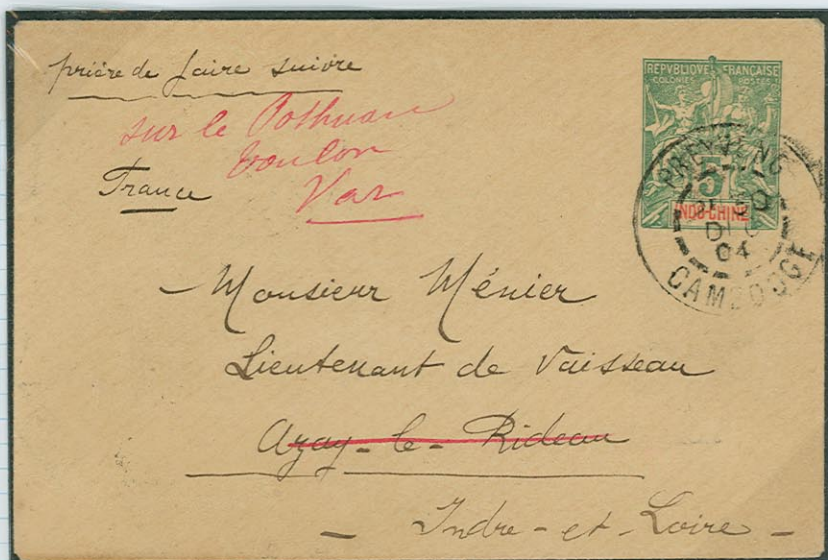 prière de faire suivre
sur le Pothuau
Toulon
France
Var
REPVBLIQVE FRANÇAISE
COLONIES POSTES
5
INDO-CHINE
PREY-VENG
DEC
04
CAMBODGE
Monsieur Ménier
Lieutenant de Vaisseau
Azay-le-Rideau
Indre-et-Loire